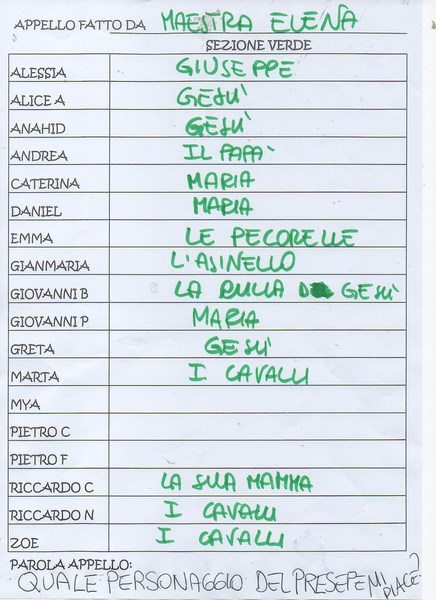 APPELLO FATTO DA MAESTRA ELENA
SEZIONE VERDE
ALESSIA GIUSEPPE
ALICE A GESU'
ANAHID GESU'
ANDREA IL PAPA'
CATERINA MARIA
DANIEL MARIA
EMMA LE PECORELLE
GIANMARIA L'ASINELLO
GIOVANNI B LA CULLA DI GESU'
GIOVANNI P MARIA
GRETA GESU'
MARTA I CAVALLI
MYA
PIETRO C
PIETRO F
RICCARDO C LA SUA MAMMA
RICCARDO N I CAVALLI
ZOE I CAVALLI
PAROLA APPELLO:
QUALE PERSONAGGIO DEL PRESEPE MI PIACE?